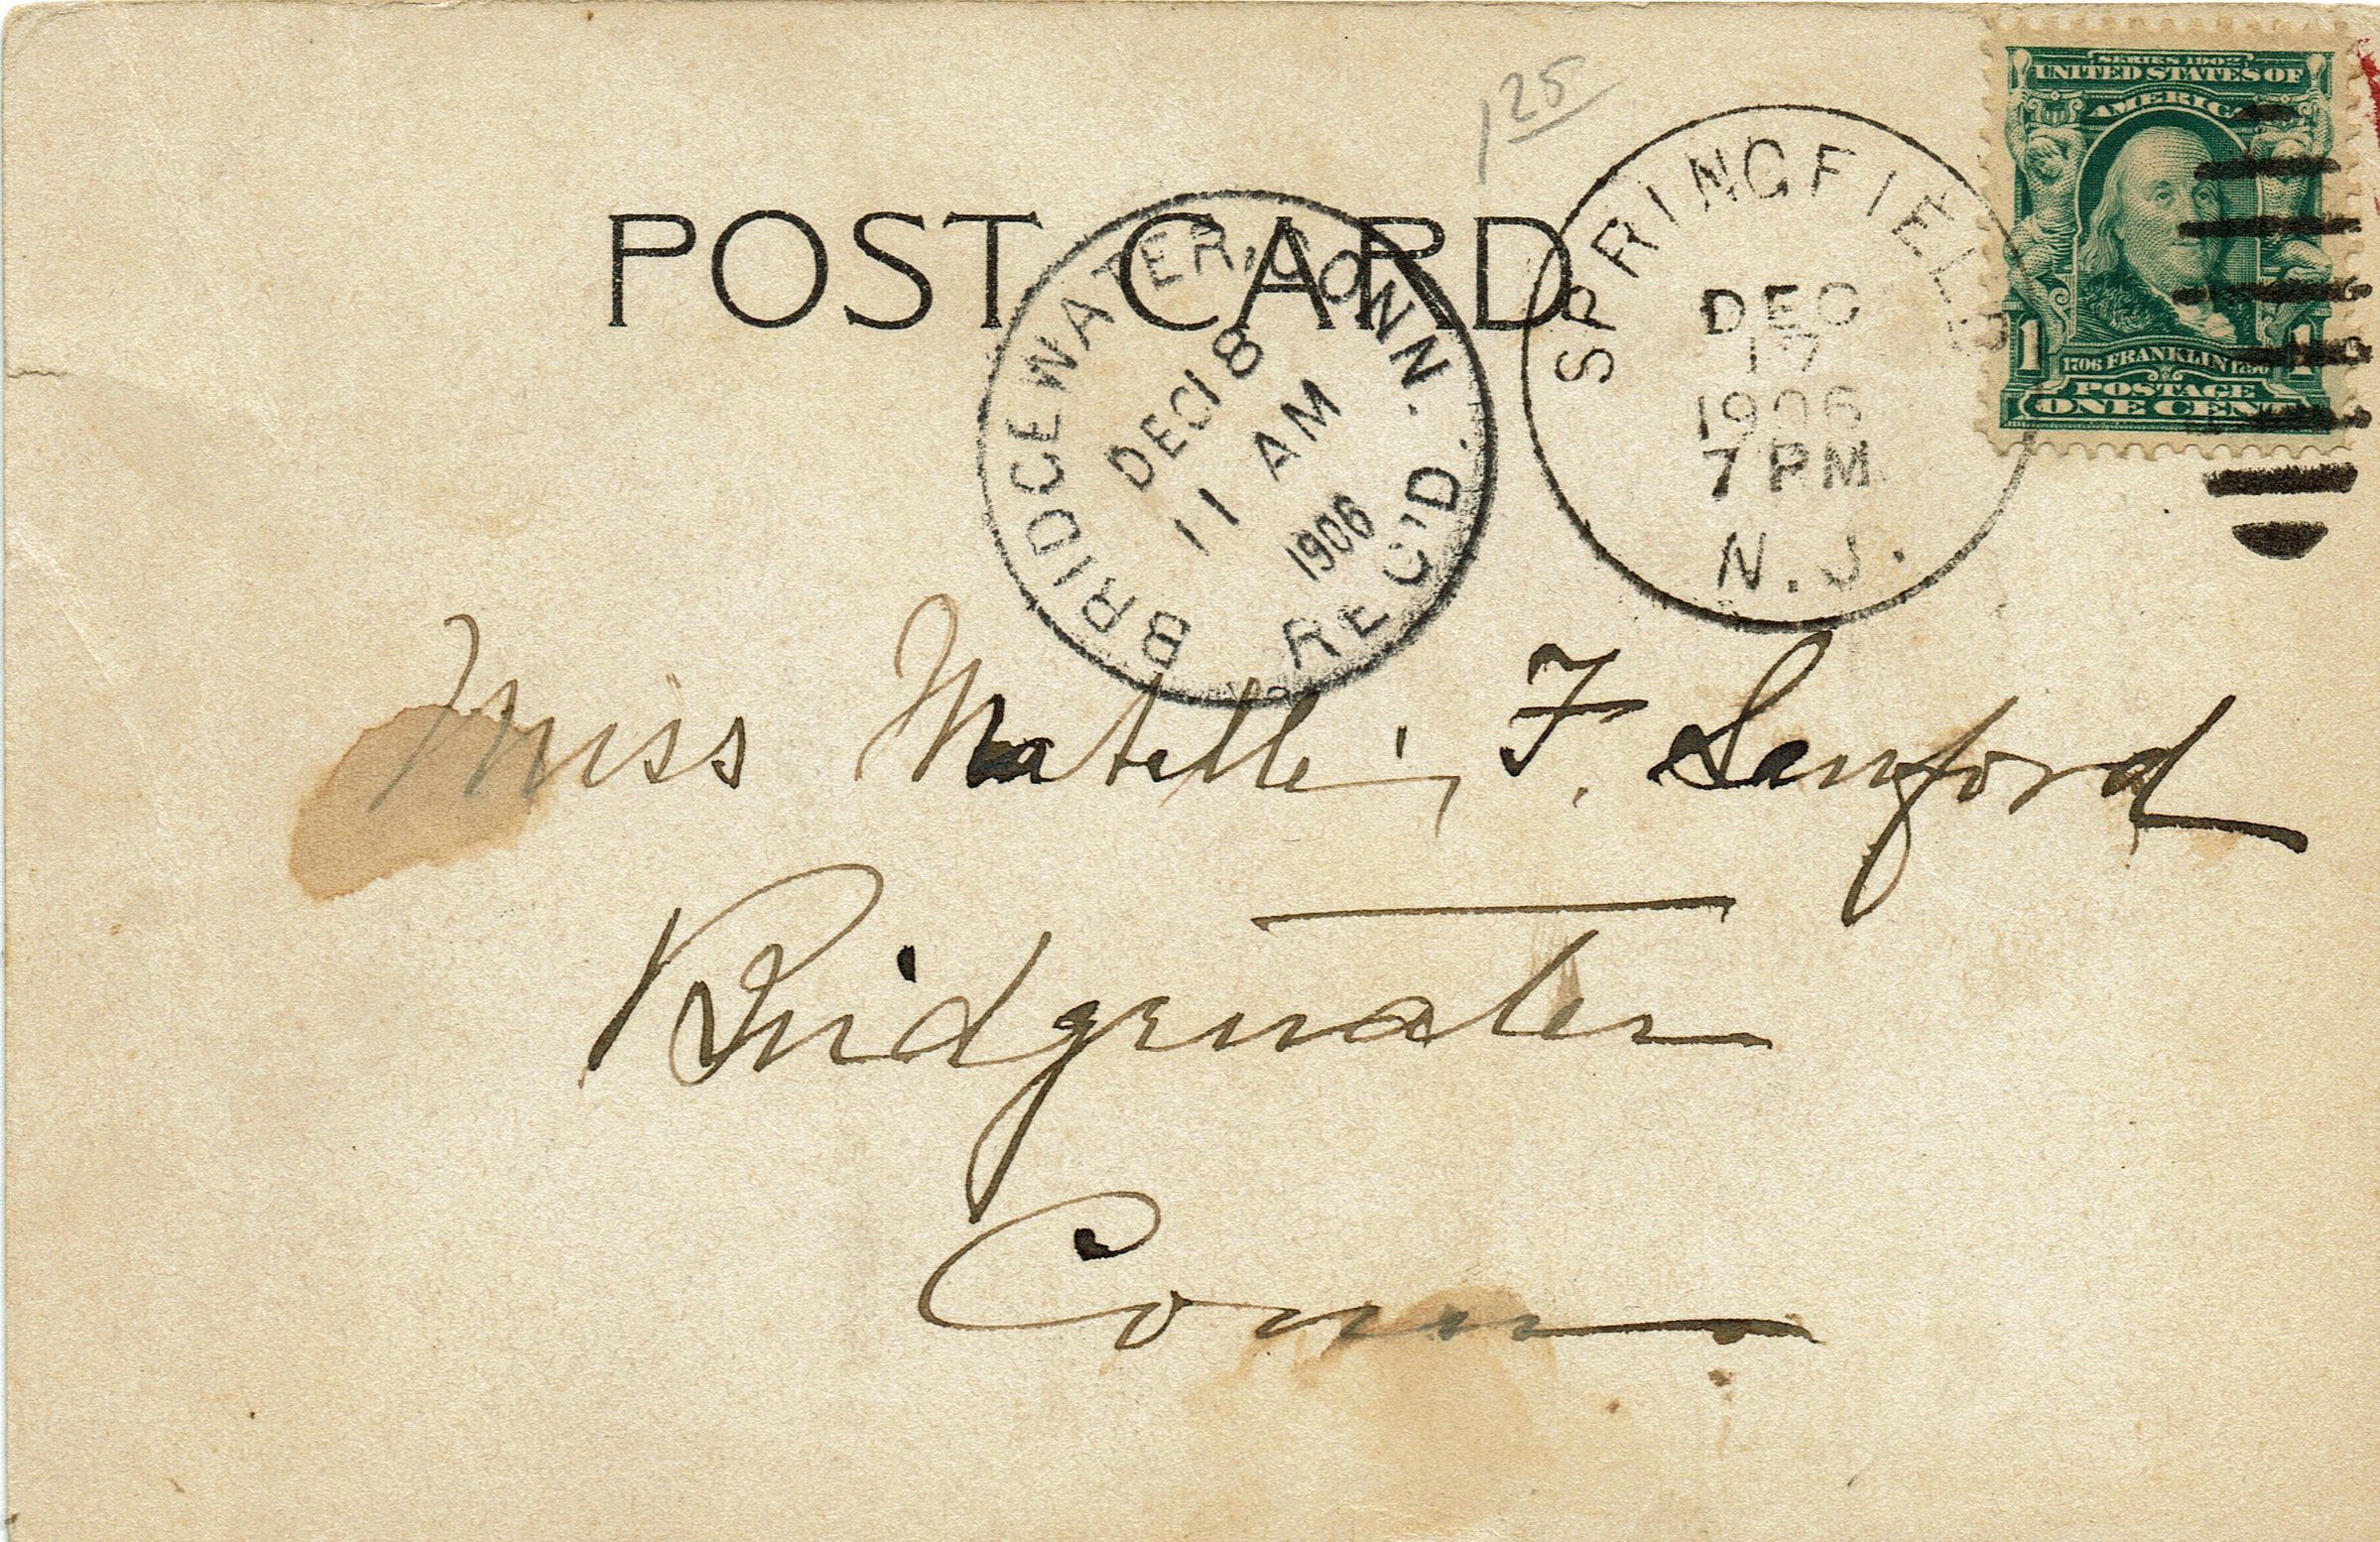 125
SERIES 1902
UNITED STATES OF
AMERICA
1706 FRANKLIN 1790
1 1
POSTAGE
ONE CENT
POST CARD
SPRINGFIELD
DEC
17
1906
7 PM
N.J.
BRIDGEWATER, CONN.
DEC 18
11 AM
1906
REC'D.
Miss F. Sanford
Bridgewater
Conn